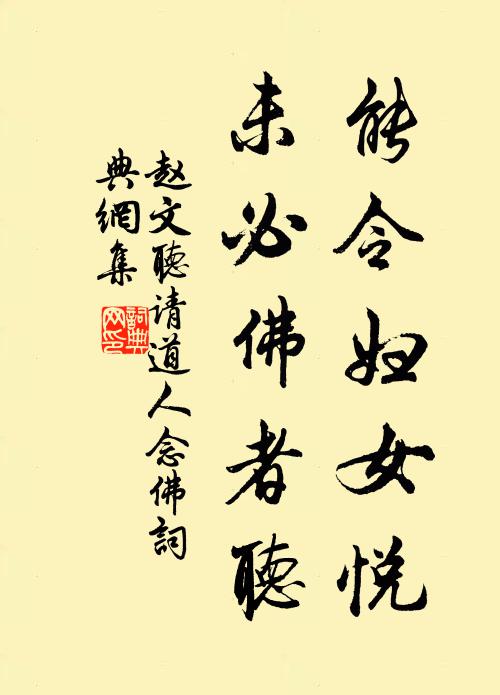 能令妇女悦
未必佛者聽
赵文聽请道人念佛詞
典網集
詞典网印